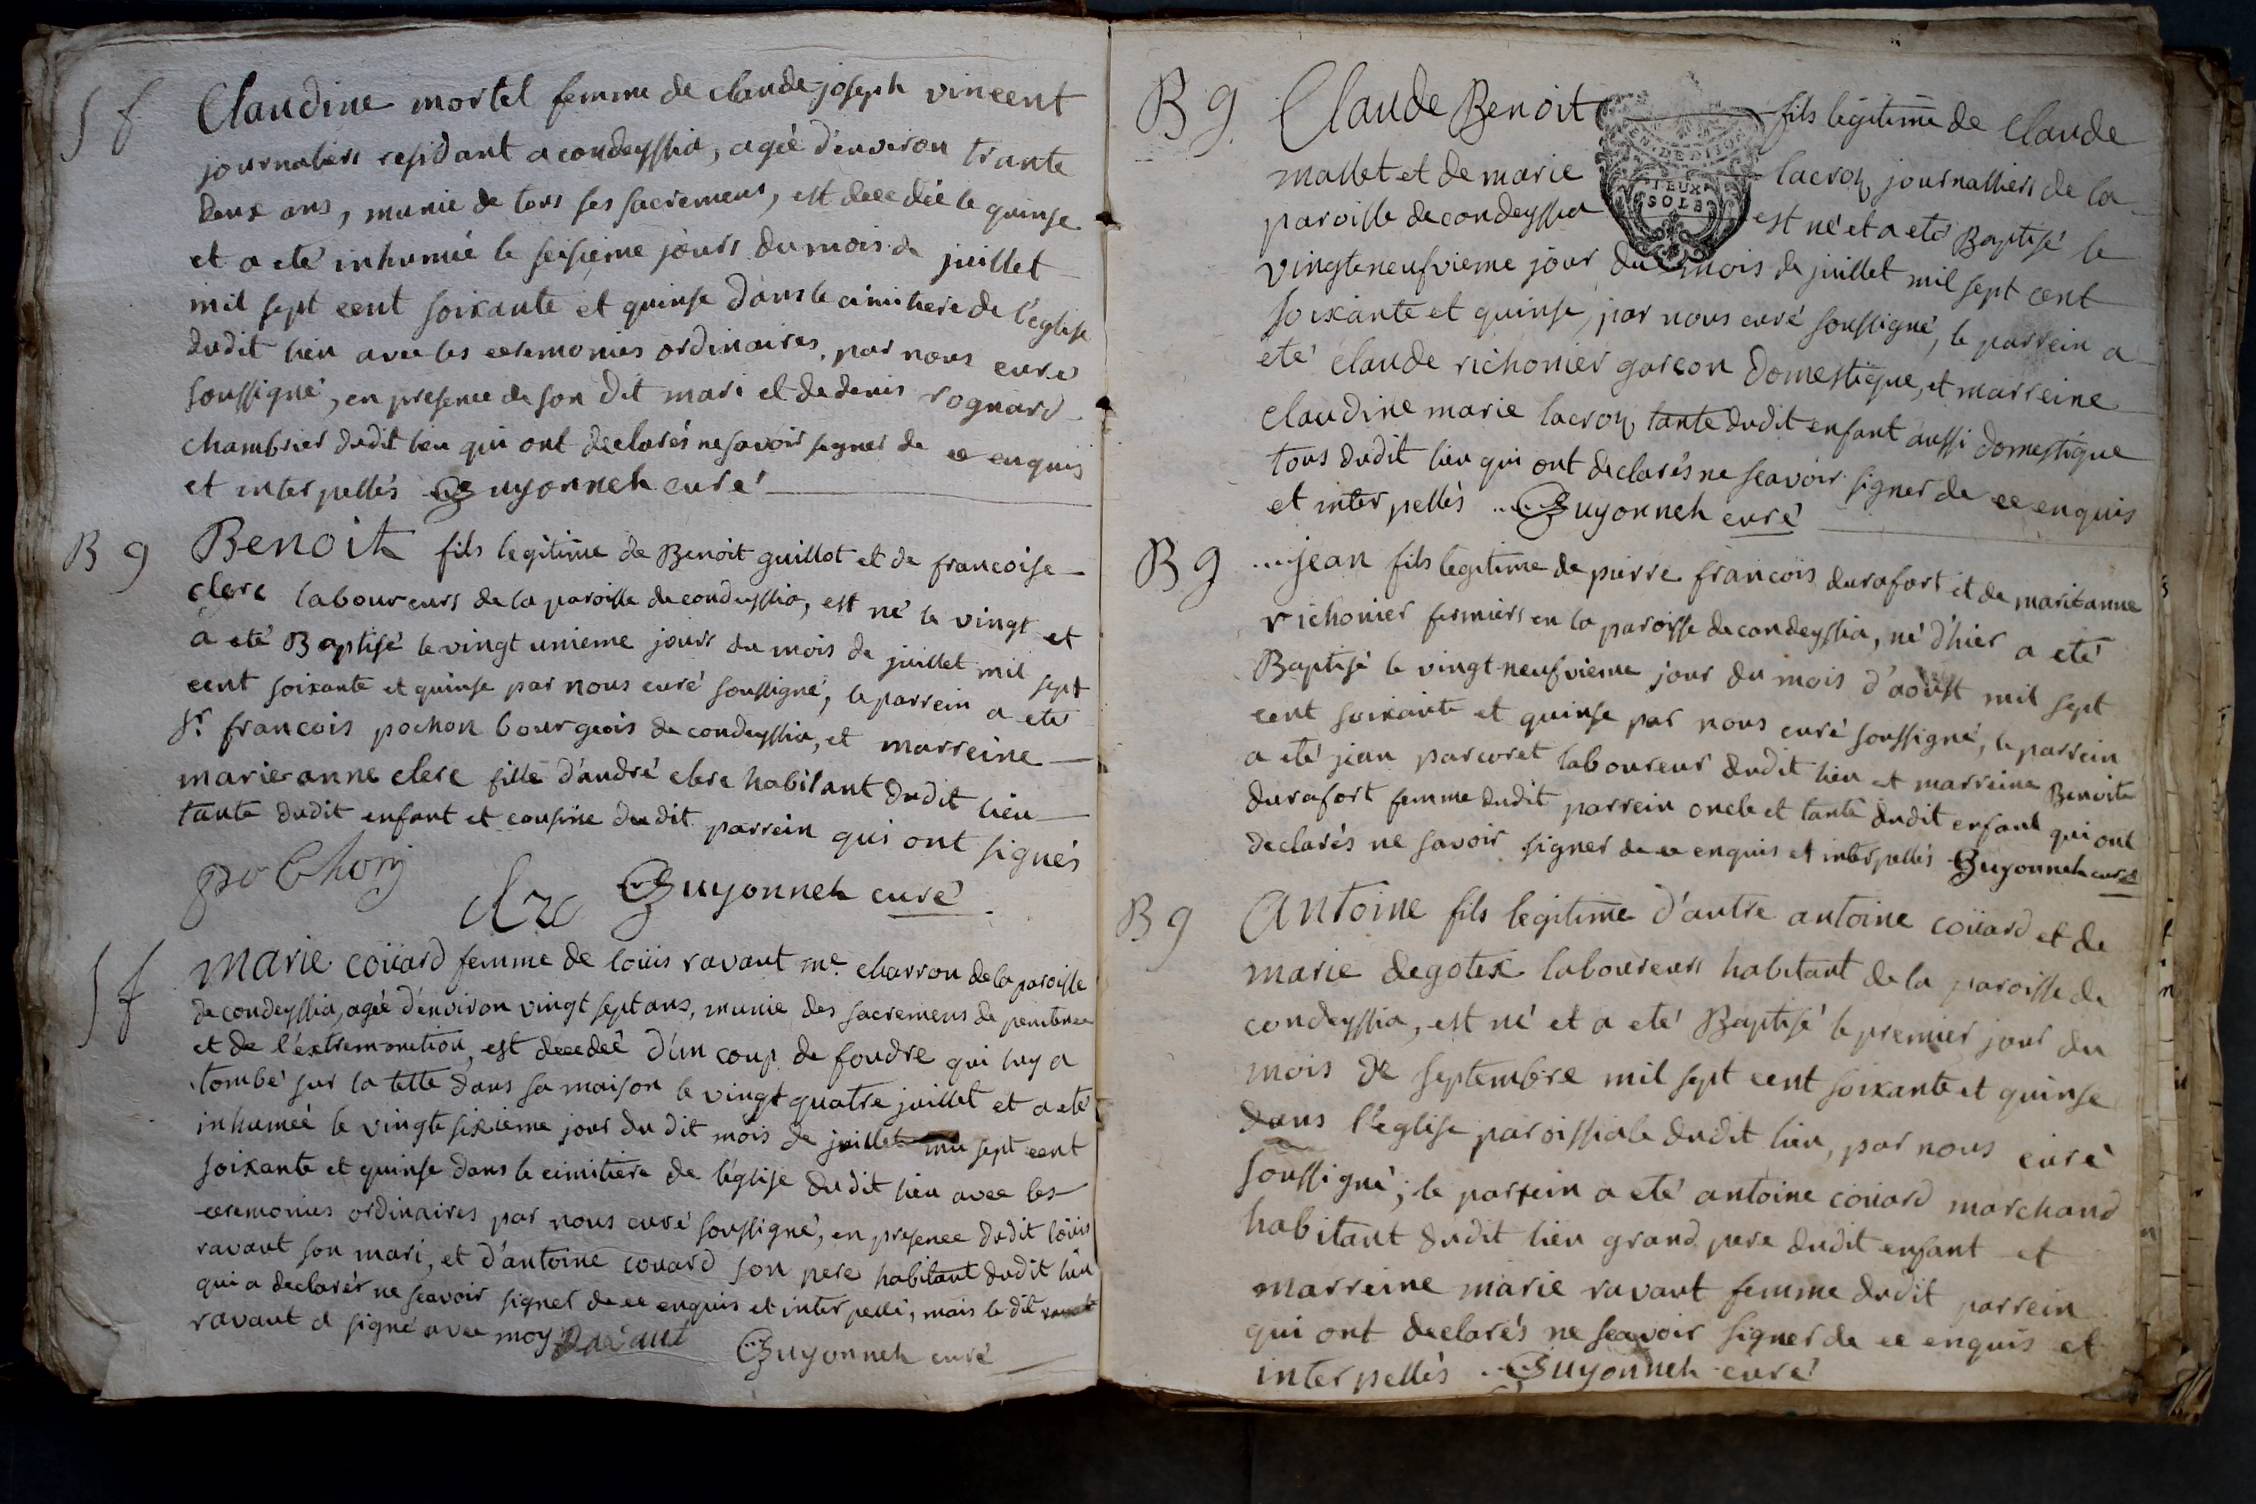 S f Claudine mortel femme de claude joseph vincent
journaliers residant a condeyssia, agéé d'environ trante
deux ans, munie de tous ses sacremens, est decedéé le quinse
et a eté inhuméé le seisieme jours du mois de juillet
mil sept cent soixante et quinse dans le cimitiere de l'eglise
dudit lieu avec les ceremonies ordinaires, par nous curé
soussigné, en presence de son dit mari et de denis rognard
chambrier dudit lieu qui ont declarés ne savoir signer de ce enquis
et interpellés Guyonneh curé
B g Benoit fils legitime de Benoit guillot et de francoise
clerc laboureurs de la paroisse de condeyssia, est né le vingt et
a eté Baptisé le vingt unieme jours du mois de juillet mil sept
cent soixante et quinse par nous curé soussigné, le parrein a eté
sr. francois pochon bourgeois de condeyssia, et marreine
marie anne clerc fille d'andré clerc habitant dudit lieu
tante dudit enfant et cousine du dit parrein qui ont signés
pochon
clrc Guyonneh curé
S f Marie coüard femme de loüis ravaut me. charron de la paroisse
de condeyssia, agéé d'environ vingt sept ans, munie des sacremens de penitence
et de l'extremonction, est decedéé d'un coup de foudre qui luy a
tombé sur la tette dans sa maison le vingt quatre juillet et a eté
inhuméé le vingt sixieme jour du dit mois de juillet mil sept cent
soixante et quinse dans le cimitiere de l'église dudit lieu avec les
ceremonies ordinaires par nous curé soussigné, en presence dudit loüis
ravaut son mari, et d'antoine couard son pere habitant dudit lieu
qui a declarér ne scavoir signer de ce enquis et interpellé, mais le dit
ravaut a signé avec moy Ravaut Guyonneh curé
B g. Claude Benoit fils legitime de Claude
mallet et de marie lacroz journalliers de la
paroisse de condeyssia est né et a eté Baptisé le
vingtneufvieme jour du mois de juillet mil sept cent
soixante et quinse, par nous curé soussigné, le parrein a
eté claude richonier garcon domestique, et marreine
claudine marie lacroz tante dudit enfant aussi domestique
tous dudit lieu qui ont declarés ne scavoir signer de ce enquis
et interpellés Guyonneh curé
DEUX
SOLS
B g jean fils legitime de pierre francois durafort et de marieanne
richonier fermiers en la paroisse de condeyssia, né d'hier a eté
Baptisé le vingt-neufvieme jour du mois d'aoust mil sept
cent soixante et quinse par nous curé soussigné, le parrein
a eté jean parcoret laboureur dudit lieu et marreine Benoite
durafort femme dudit parrein oncle et tante dudit enfant qui ont
declarés ne savoir signer de ce enquis et interpellés Guyonneh curé
B g Antoine fils legitime d'autre antoine coüard et de
marie degotex laboureurs habitant de la paroisse de
condeyssia, est né et a eté Baptisé le premier jour du
mois de septembre mil sept cent soixante et quinse
dans l'eglise paroissiale dudit lieu, par nous curé
soussigné; le parrein a eté antoine coüard marchand
habitant dudit lieu grand pere dudit enfant et
marreine marie ravaut femme dudit parrein
qui ont declarés ne scavoir signer de ce enquis et
interpellés Guyonneh curé